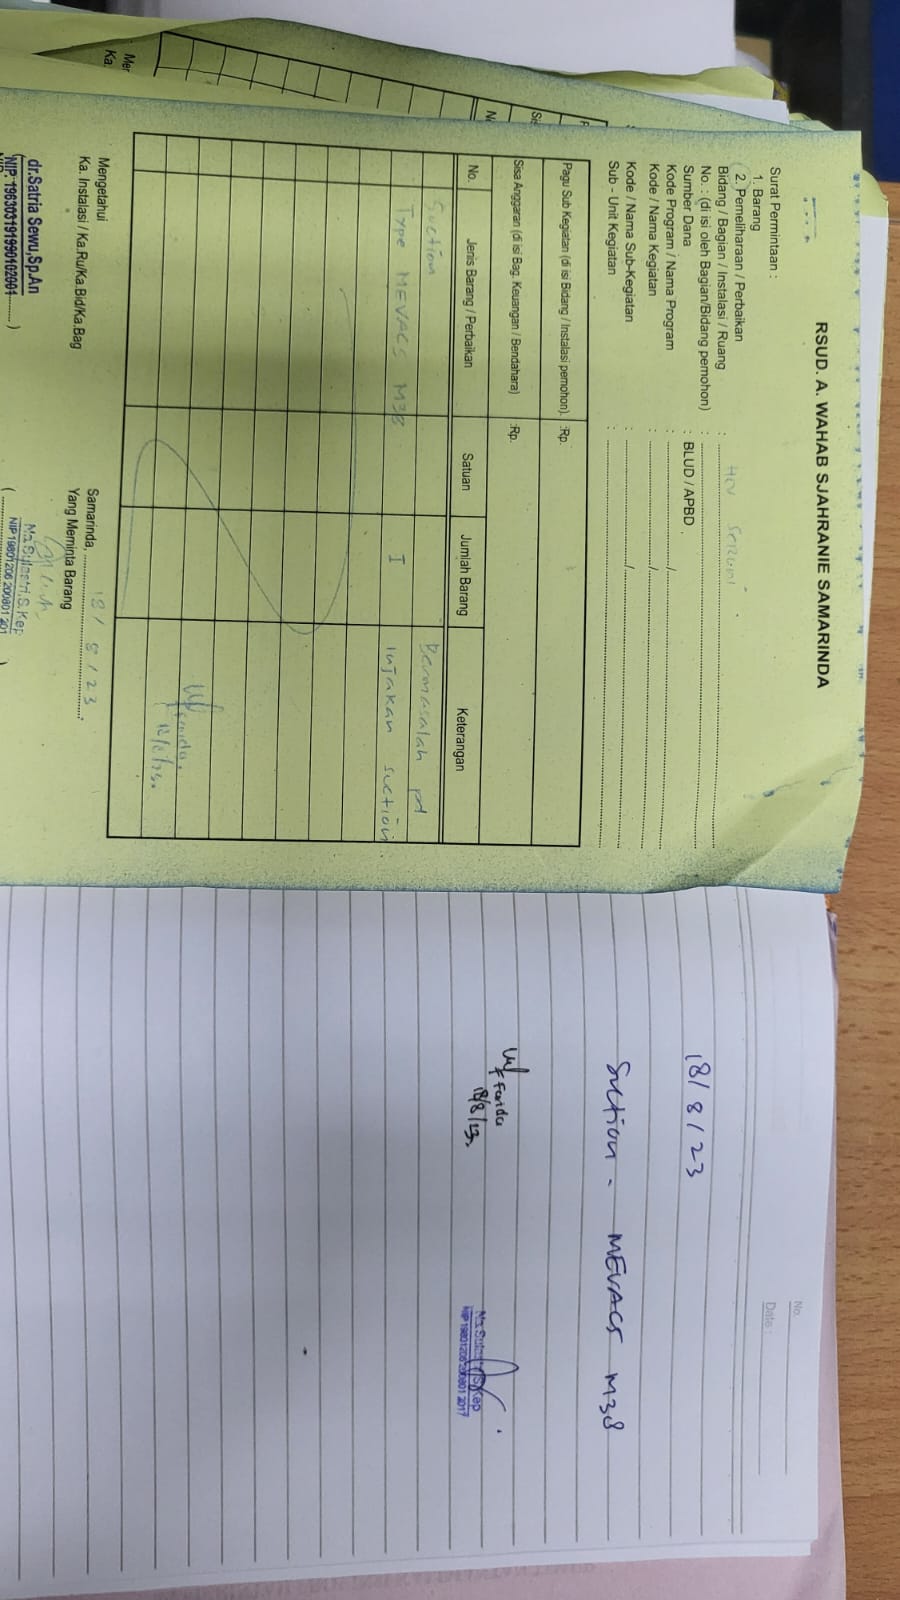 RSUD. A. WAHAB SJAHRANIE SAMARINDA
Surat Permintaan :
1. Barang
2. Pemeliharaan / Perbaikan
Bidang / Bagian / Instalasi / Ruang : HCU
No. : (di isi oleh Bagian/Bidang pemohon) :
Sumber Dana : BLUD / APBD
Kode Program / Nama Program : /
Kode / Nama Kegiatan : /
Kode / Nama Sub-Kegiatan : /
Sub - Unit Kegiatan :
Pagu Sub Kegiatan (di isi Bidang / Instalasi pemohon). :Rp.
Sisa Anggaran (di isi Bag. Keuangan / Bendahara) :Rp.
No. Jenis Barang / Perbaikan Satuan Jumlah Barang Keterangan
Suction Bermasalah pd
Type MEVACS M38 I injakan suction
Farida.
Samarinda, 18 / 8 / 23
Mengetahui Yang Meminta Barang
Ka. Instalasi / Ka.Ru/Ka.Bid/Ka.Bag
dr.Satria Sewu,Sp.An
NIP. 196303191990102001
NIP 19801206 200801 201
Mer
Ka.
No.
Date :
18 / 8 / 23
Suction - MEVACS M38
Farida
18/8/23.
NIP 19801206 200801 2017